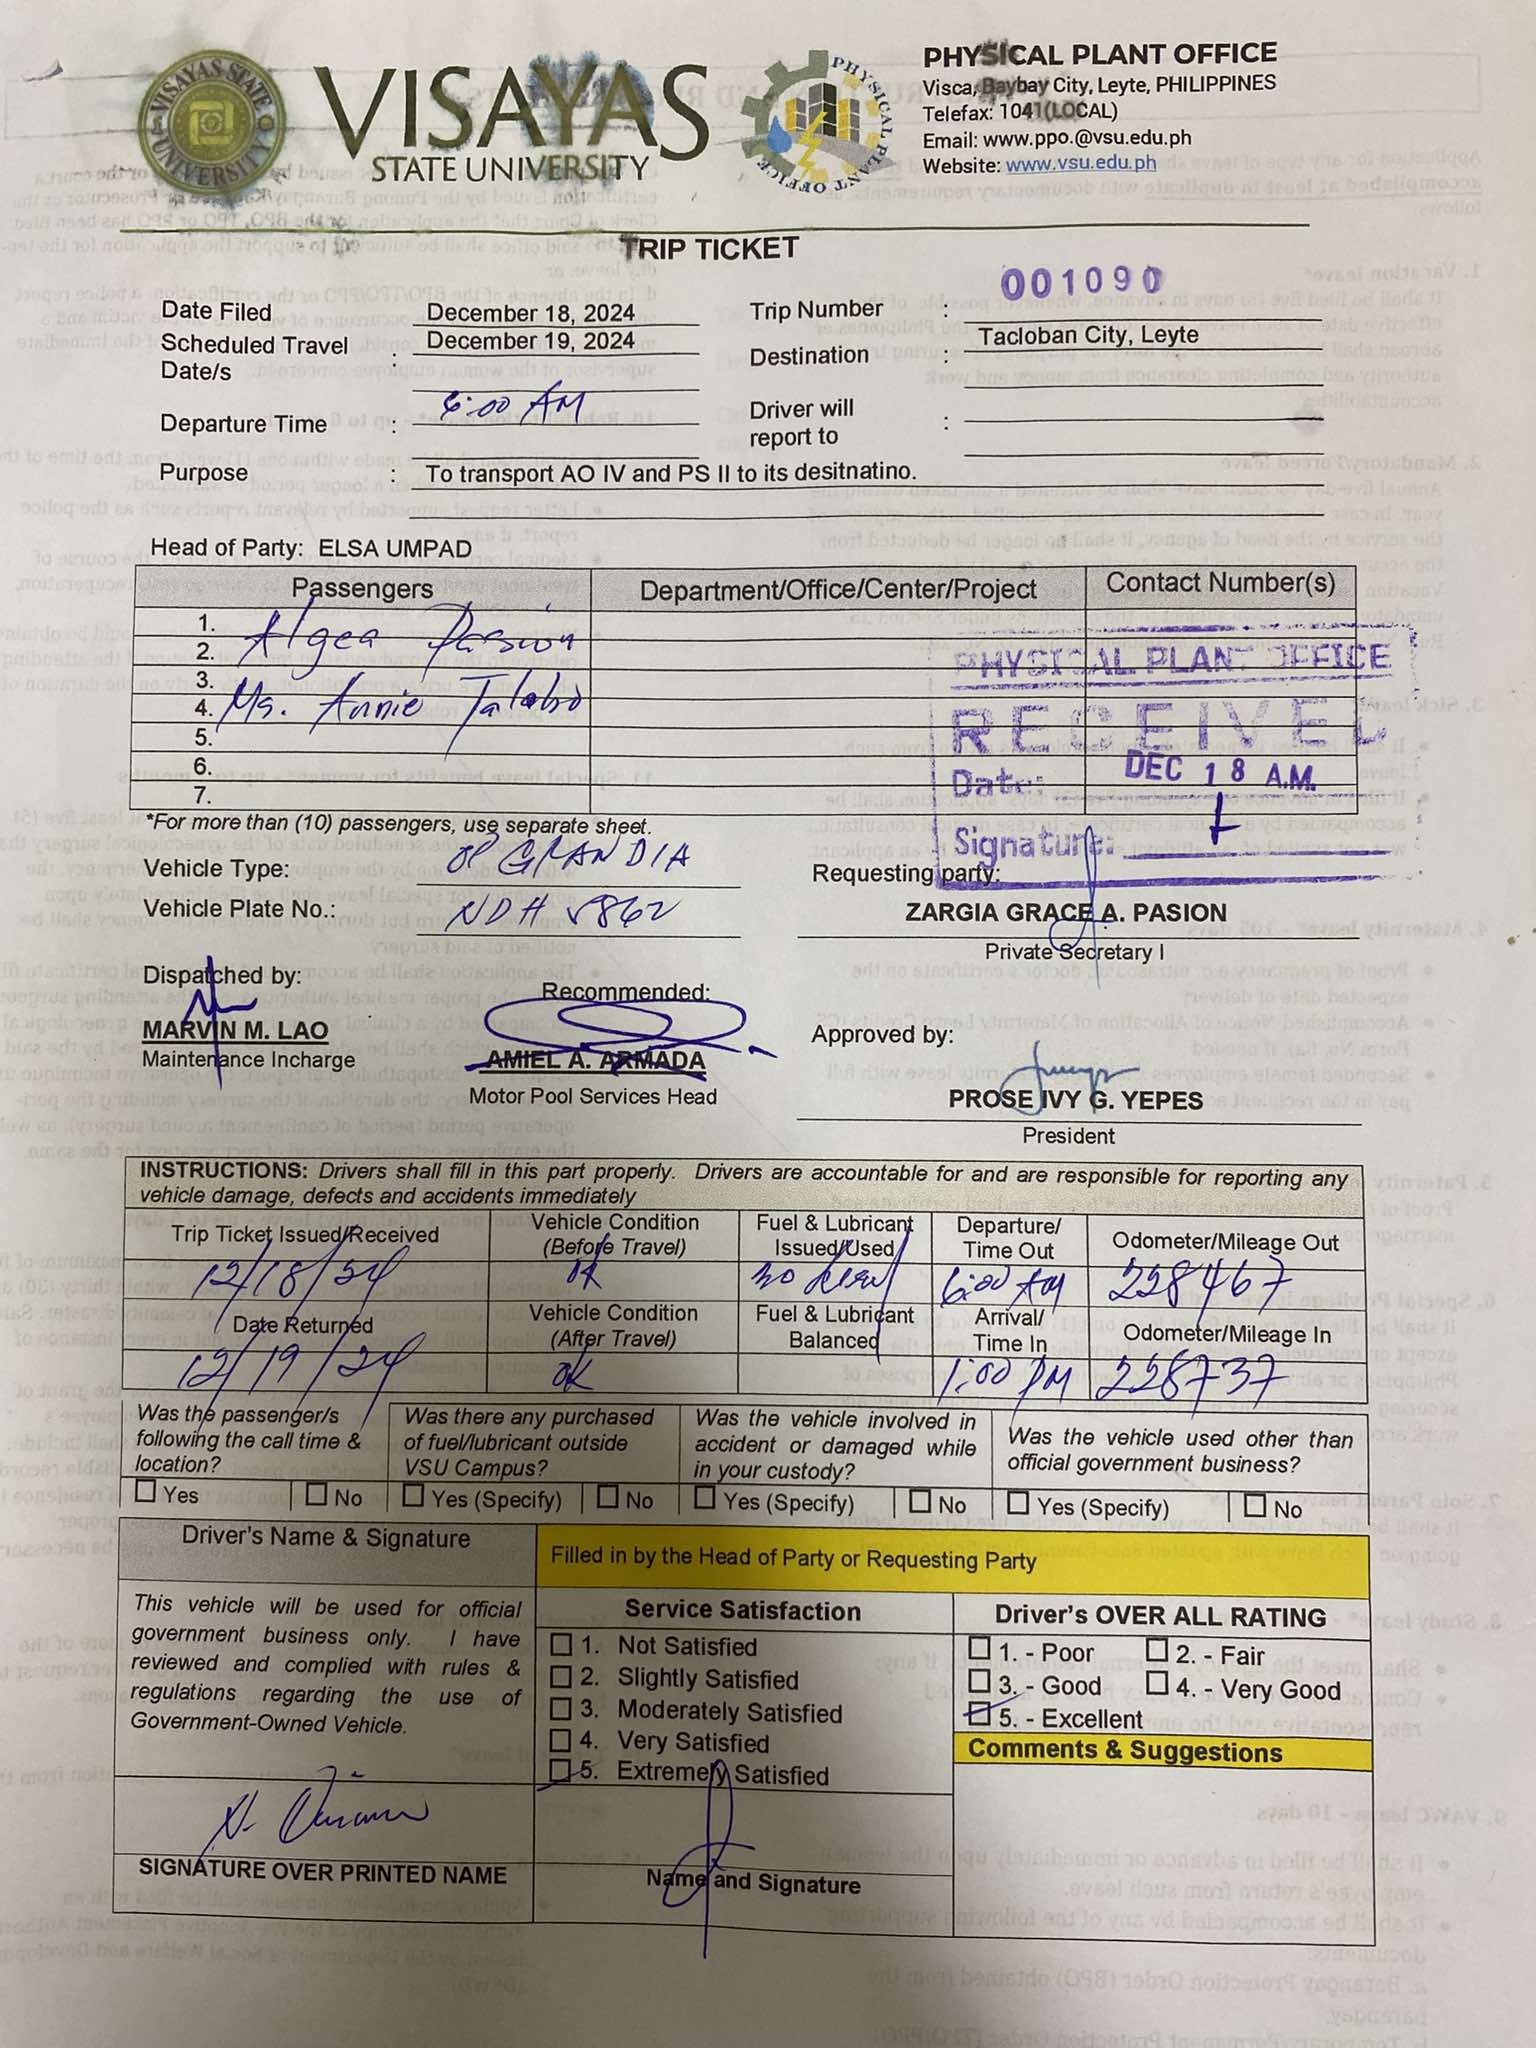 VISAYAS STATE UNIVERSITY
VISAYAS
STATE UNIVERSITY
PHYSICAL PLANT OFFICE
PHYSICAL PLANT OFFICE
Visca, Baybay City, Leyte, PHILIPPINES
Telefax: 1041(LOCAL)
Email: www.ppo.@vsu.edu.ph
Website: www.vsu.edu.ph
TRIP TICKET
Date Filed : December 18, 2024 Trip Number : 001090
Scheduled Travel Date/s : December 19, 2024 Destination : Tacloban City, Leyte
Departure Time : 6:00 AM Driver will report to :
Purpose : To transport AO IV and PS II to its desitnatino.
Head of Party: ELSA UMPAD
Passengers Department/Office/Center/Project Contact Number(s)
1.
2. Algea Pasion
3.
4. Ms. Annie Talabo
5.
6.
7.
PHYSICAL PLANT OFFICE
RECEIVED
Date: DEC 18 A.M.
Signature:
*For more than (10) passengers, use separate sheet.
Vehicle Type: OP GRANDIA
Vehicle Plate No.: NDH 5862
Requesting party:
ZARGIA GRACE A. PASION
Private Secretary I
Dispatched by:
MARVIN M. LAO
Maintenance Incharge
Recommended:
AMIEL A. ARMADA
Motor Pool Services Head
Approved by:
PROSE IVY G. YEPES
President
INSTRUCTIONS: Drivers shall fill in this part properly. Drivers are accountable for and are responsible for reporting any
vehicle damage, defects and accidents immediately
Trip Ticket Issued/Received Vehicle Condition (Before Travel) Fuel & Lubricant Issued/Used Departure/ Time Out Odometer/Mileage Out
12/18/24 OK 30 6:00 AM 228467
Date Returned Vehicle Condition (After Travel) Fuel & Lubricant Balanced Arrival/ Time In Odometer/Mileage In
12/19/24 OK 1:00 PM 228737
Was the passenger/s following the call time & location?
Yes No
Was there any purchased of fuel/lubricant outside VSU Campus?
Yes (Specify) No
Was the vehicle involved in accident or damaged while in your custody?
Yes (Specify) No
Was the vehicle used other than official government business?
Yes (Specify) No
Driver's Name & Signature
This vehicle will be used for official
government business only. I have
reviewed and complied with rules &
regulations regarding the use of
Government-Owned Vehicle.
SIGNATURE OVER PRINTED NAME
Filled in by the Head of Party or Requesting Party
Service Satisfaction
1. Not Satisfied
2. Slightly Satisfied
3. Moderately Satisfied
4. Very Satisfied
5. Extremely Satisfied
Name and Signature
Driver's OVER ALL RATING
1. - Poor 2. - Fair
3. - Good 4. - Very Good
5. - Excellent
Comments & Suggestions